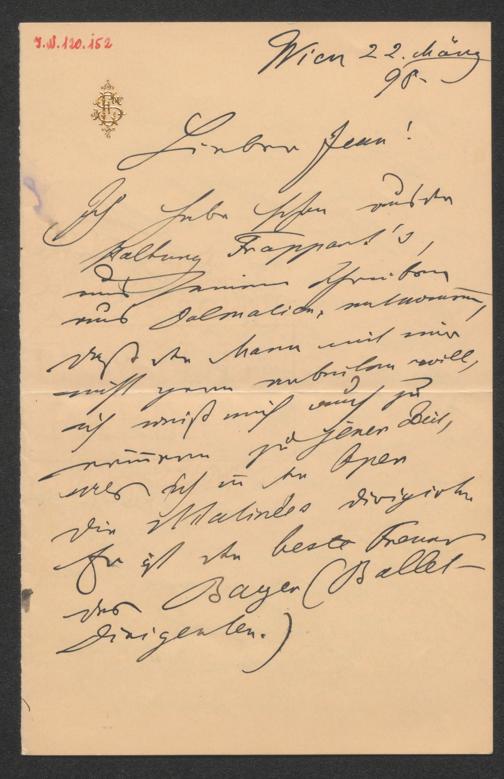 J.N. 120.152
Wien 22. März
98.
Lieber Jean!
Ich habe schon aus der
Haltung Frappart's,
aus seinem Schreiben
aus Dalmatien, entnommen,
daß der Mann mit mir
nicht gern arbeiten will,
ich weiß mich auch zu
erinnern zu jener Zeit,
wo ich in der Oper
die dirigirte
Er ist der beste Freund
des Bayer (Ballet-
dirigenten.)